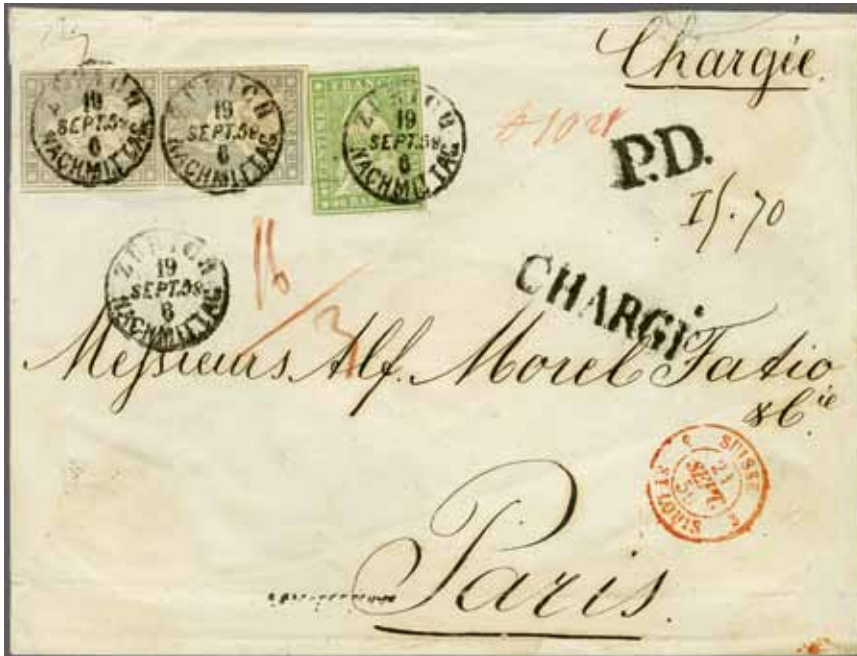 Chargée.
ZÜRICH
19
SEPT. 58
6
NACHMITTAG
ZÜRICH
19
SEPT. 58
6
NACHMITTAG
FRANCO
ZÜRICH
19
SEPT. 58
6
NACHMITTAG
P.D.
70
ZÜRICH
19
SEPT. 58
6
NACHMITTAG
16
3
CHARGÉ
Messieurs Alf. Morel Fatio
& Cie
SUISSE
21
SEPT.
ST LOUIS
Paris.